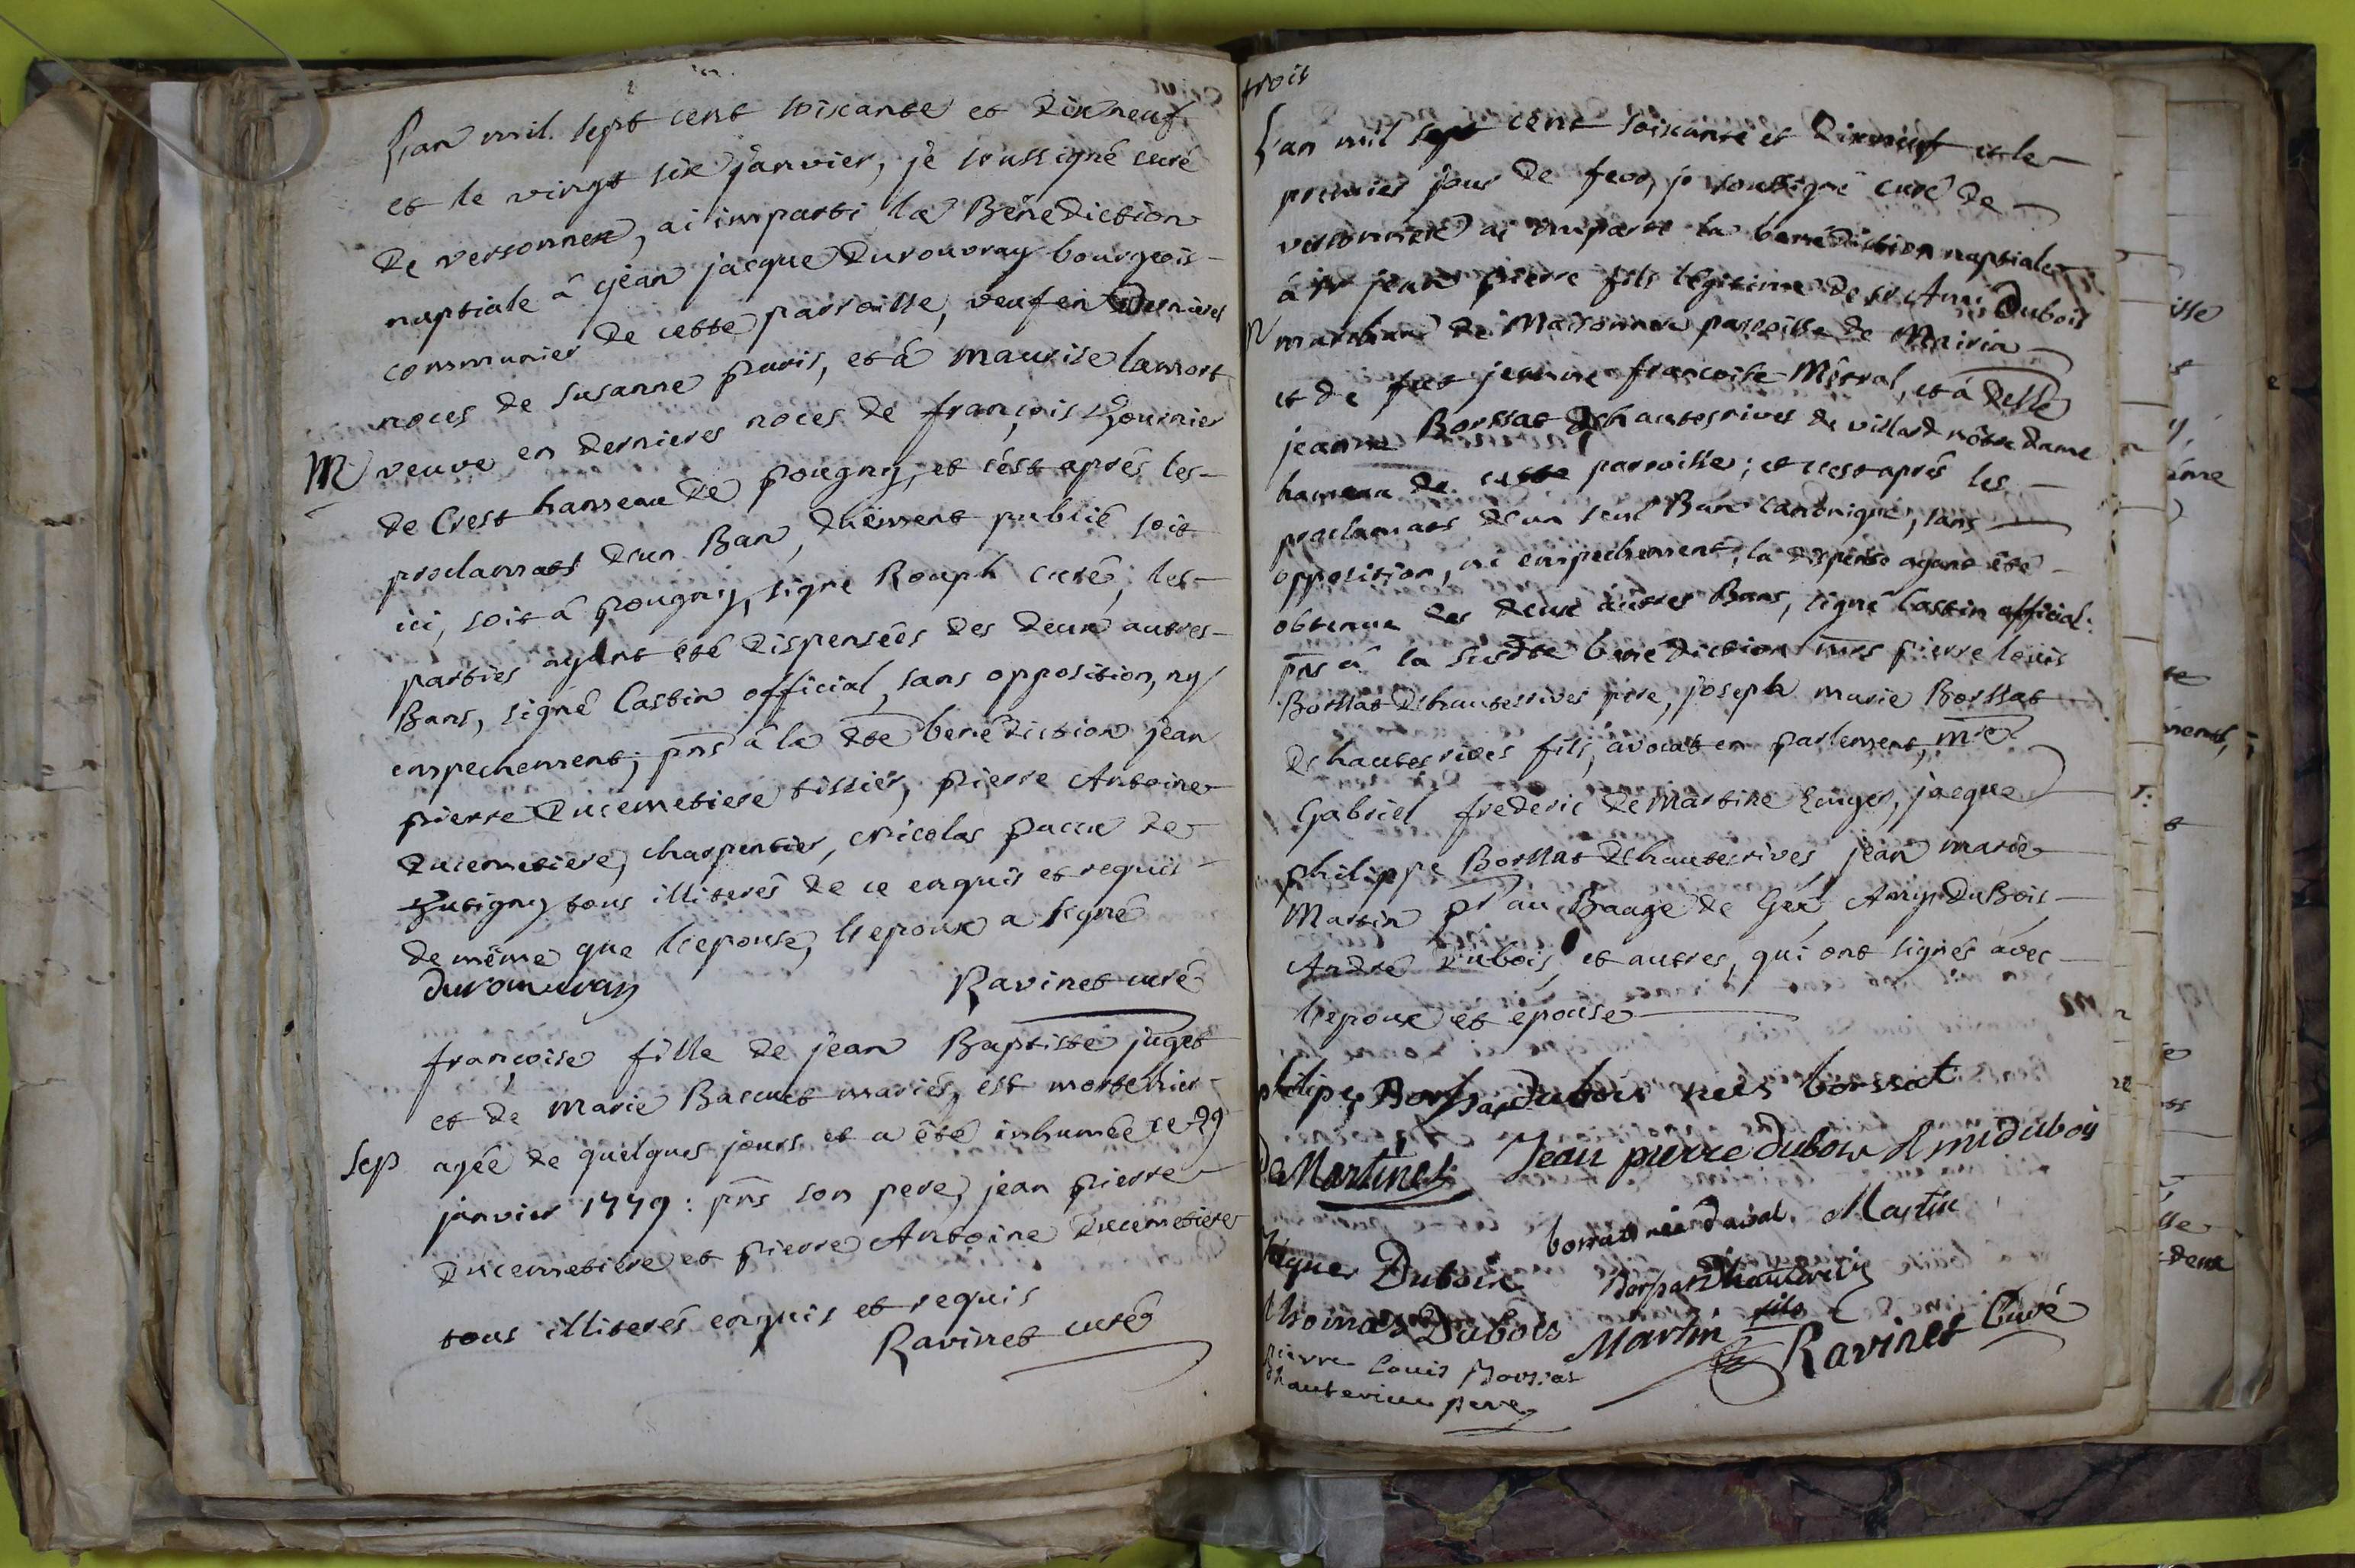 L'an mil sept cent soixante et dixneuf
et le vingt six janvier, je soussigné curé
de versonnex, ai imparti la Bénédiction
nuptiale â jean jacque Durouvray bourgeois
communier de cette paroisse, veuf en dernieres
noces de susanne puris, et â maurise lamort
M veuve en dernieres noces de françois fournier
de Crest hameau de pougny, et c'est aprés les
proclamats d'un Ban, dhüement publié soit
ici, soit â pougny, signe Rouph curé, les
parties ayant eté dispensées des deux autres
Bans, signé Castin official, sans opposition, ny
empechement; pns â la dte benediction jean
pierre Ducemetiere tissier, pierre Antoine
Ducemetiere, charpentier, Nicolas pacu de
tous illiterés de ce enquis et requis
de même que l'epouse, l'epoux a signé
durouuray Ravinet curé
françoise fille de jean Baptiste juget
et de Marie Bacuet mariés, est morte hier
Sep agée de quelques jours et a êté inhumée ce 29
janvier 1779: pns son pere, jean pierre
Ducemetiere et pierre Antoine Ducemetiere
tous illiterés enquis et requis
Ravinet curé
trois
L'an mil sept cent soixante et dixneuf et le
premier jour de fevr, je soussigné curé de
versonnex ai imparti la bénédiction nuptiale
â sr jean pierre fils légitime de sr Ami Dubois
marchand de Maisonnex paroisse de Mairin
et de fut jeanne françoise Méral, et â delle
jeanne Borssat d'hauterives de villard nôtre dame
hameau de cette paroisse; et c'est aprés les
proclamats d'un seul Ban canonique, sans
opposition, ni empechement, la dispense ayant êté
obtenue des deux autres Bans, signé Castin official:
pns â la susdte bénédiction mrs pierre louis
Borssat d'hauterives pere, joseph marie Borssat
d'hauterives fils, avocat en parlement, mre
Gabriel frederic de Martine, jacque
philippe Borssat d'hauterives, jean marie
Martin pr au Baage de Gex, Amy DuBois
André Dubois, et autres, qui ont signés avec
l'epoux et epouse
philipe Borssat dubois neés borssat
De Martines Jean pierre dubois Ami dubois
borssat née daval. Martin
Jaques Dubois Borssat Dhauterives
fils
thomas Dubois Martin Ravinet Curé
pierre Louis Borssat
dhauterives pere